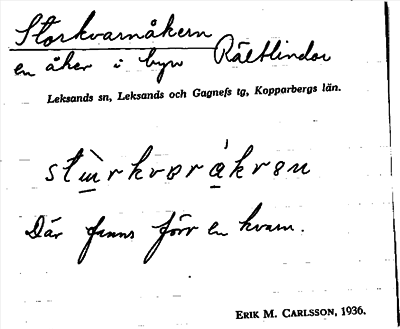 Storkvarnåkern
en åker i byn Rältlindor
Leksands sn, Leksands och Gagnefs tg, Kopparbergs län.
Där fanns förr en kvarn.
ERIK M. CARLSSON, 1936.